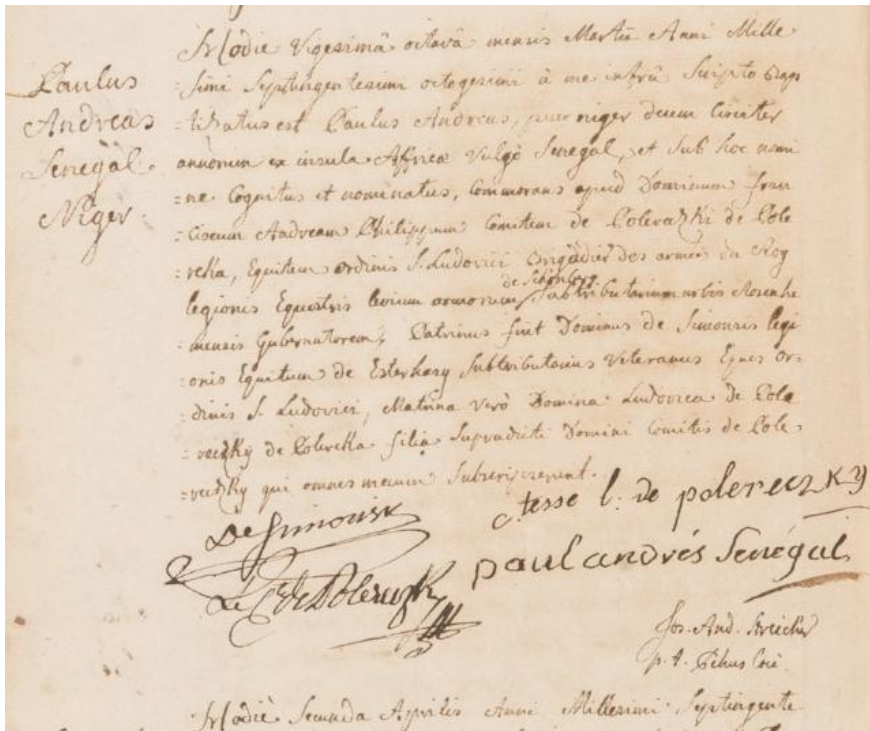 Hodie Vigesimâ octavâ mensis Martii Anni Mille
=simi Septingentesimi octogesimi à me infrà Scripto Bap
=tizatus est Paulus Andreas, puer niger decem Circiter
annorum ex insula Affricæ Vulgò Senegal, et Sub hoc nomi
=ne Cognitus et nominatus, Commorans apud Dominum fran
=ciscum Andream Philippum Comitem de Polerazki de Pole
=reka, Equitem ordinis S. Ludovici Brigadier des armées du Roy
de Schönberg
legionis Equestris levium armorum Subtributarium urbis Rosenhe
=mensis Gubernatorem, Patrinus fuit Dominus de Simonsis legi
=onis Equitum de Esterhasy Subtributarius Veteranus Eques or=
=dinis S. Ludovici, Matrina Verò Domina Ludovica de Pole
=reczky de Polereka filia Supradicti Domini Comitis de Pole=
=reczky qui omnes mecum Subscripserunt.
Paulus
Andreas
Senegal
Niger
De Simonsis
c.tesse l: de polereczky
Le Cte de Polereczky
paul andrés Senégal
Jos. And. Streicher
p. t.
Hodiè Secunda Aprilis Anni Millesimi Septingente